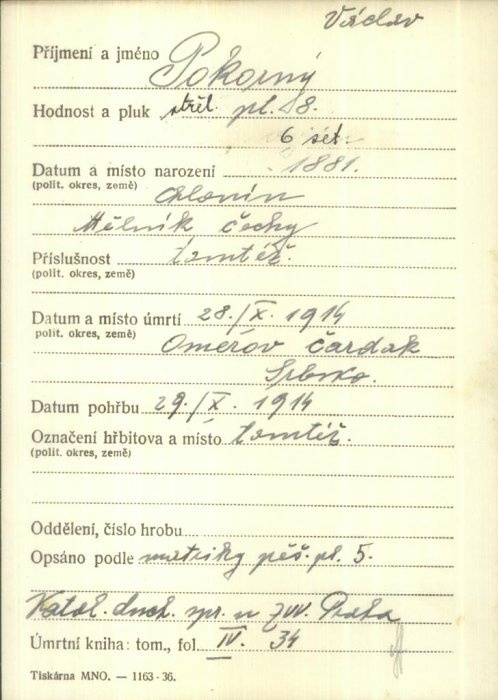 Václav
Příjmení a jméno Pokorný
Hodnost a pluk střel. pl. 8.
6 set.
Datum a místo narození 1881.
(polit. okres, země)
Chlonin
Mělník Čechy
Příslušnost tamtéž.
(polit. okres, země)
Datum a místo úmrtí 28./X. 1914
polit. okres, země)
Omerov čardak
Srbsko.
Datum pohřbu 29./X. 1914
Označení hřbitova a místo tamtéž.
(polit. okres, země)
Oddělení, číslo hrobu
Opsáno podle matriky pěš. pl. 5.
Katol. duch. spr. u ZVV. Praha
Úmrtní kniha: tom., fol. IV. 34
Tiskárna MNO. — 1163-36.